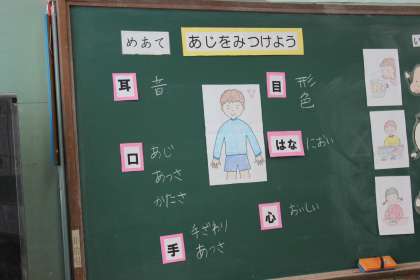 めあて
あじをみつけよう
耳 音
目 形
色
口 あじ
あつさ
かたさ
はな におい
手 手ざわり
あつさ
心 おいしい